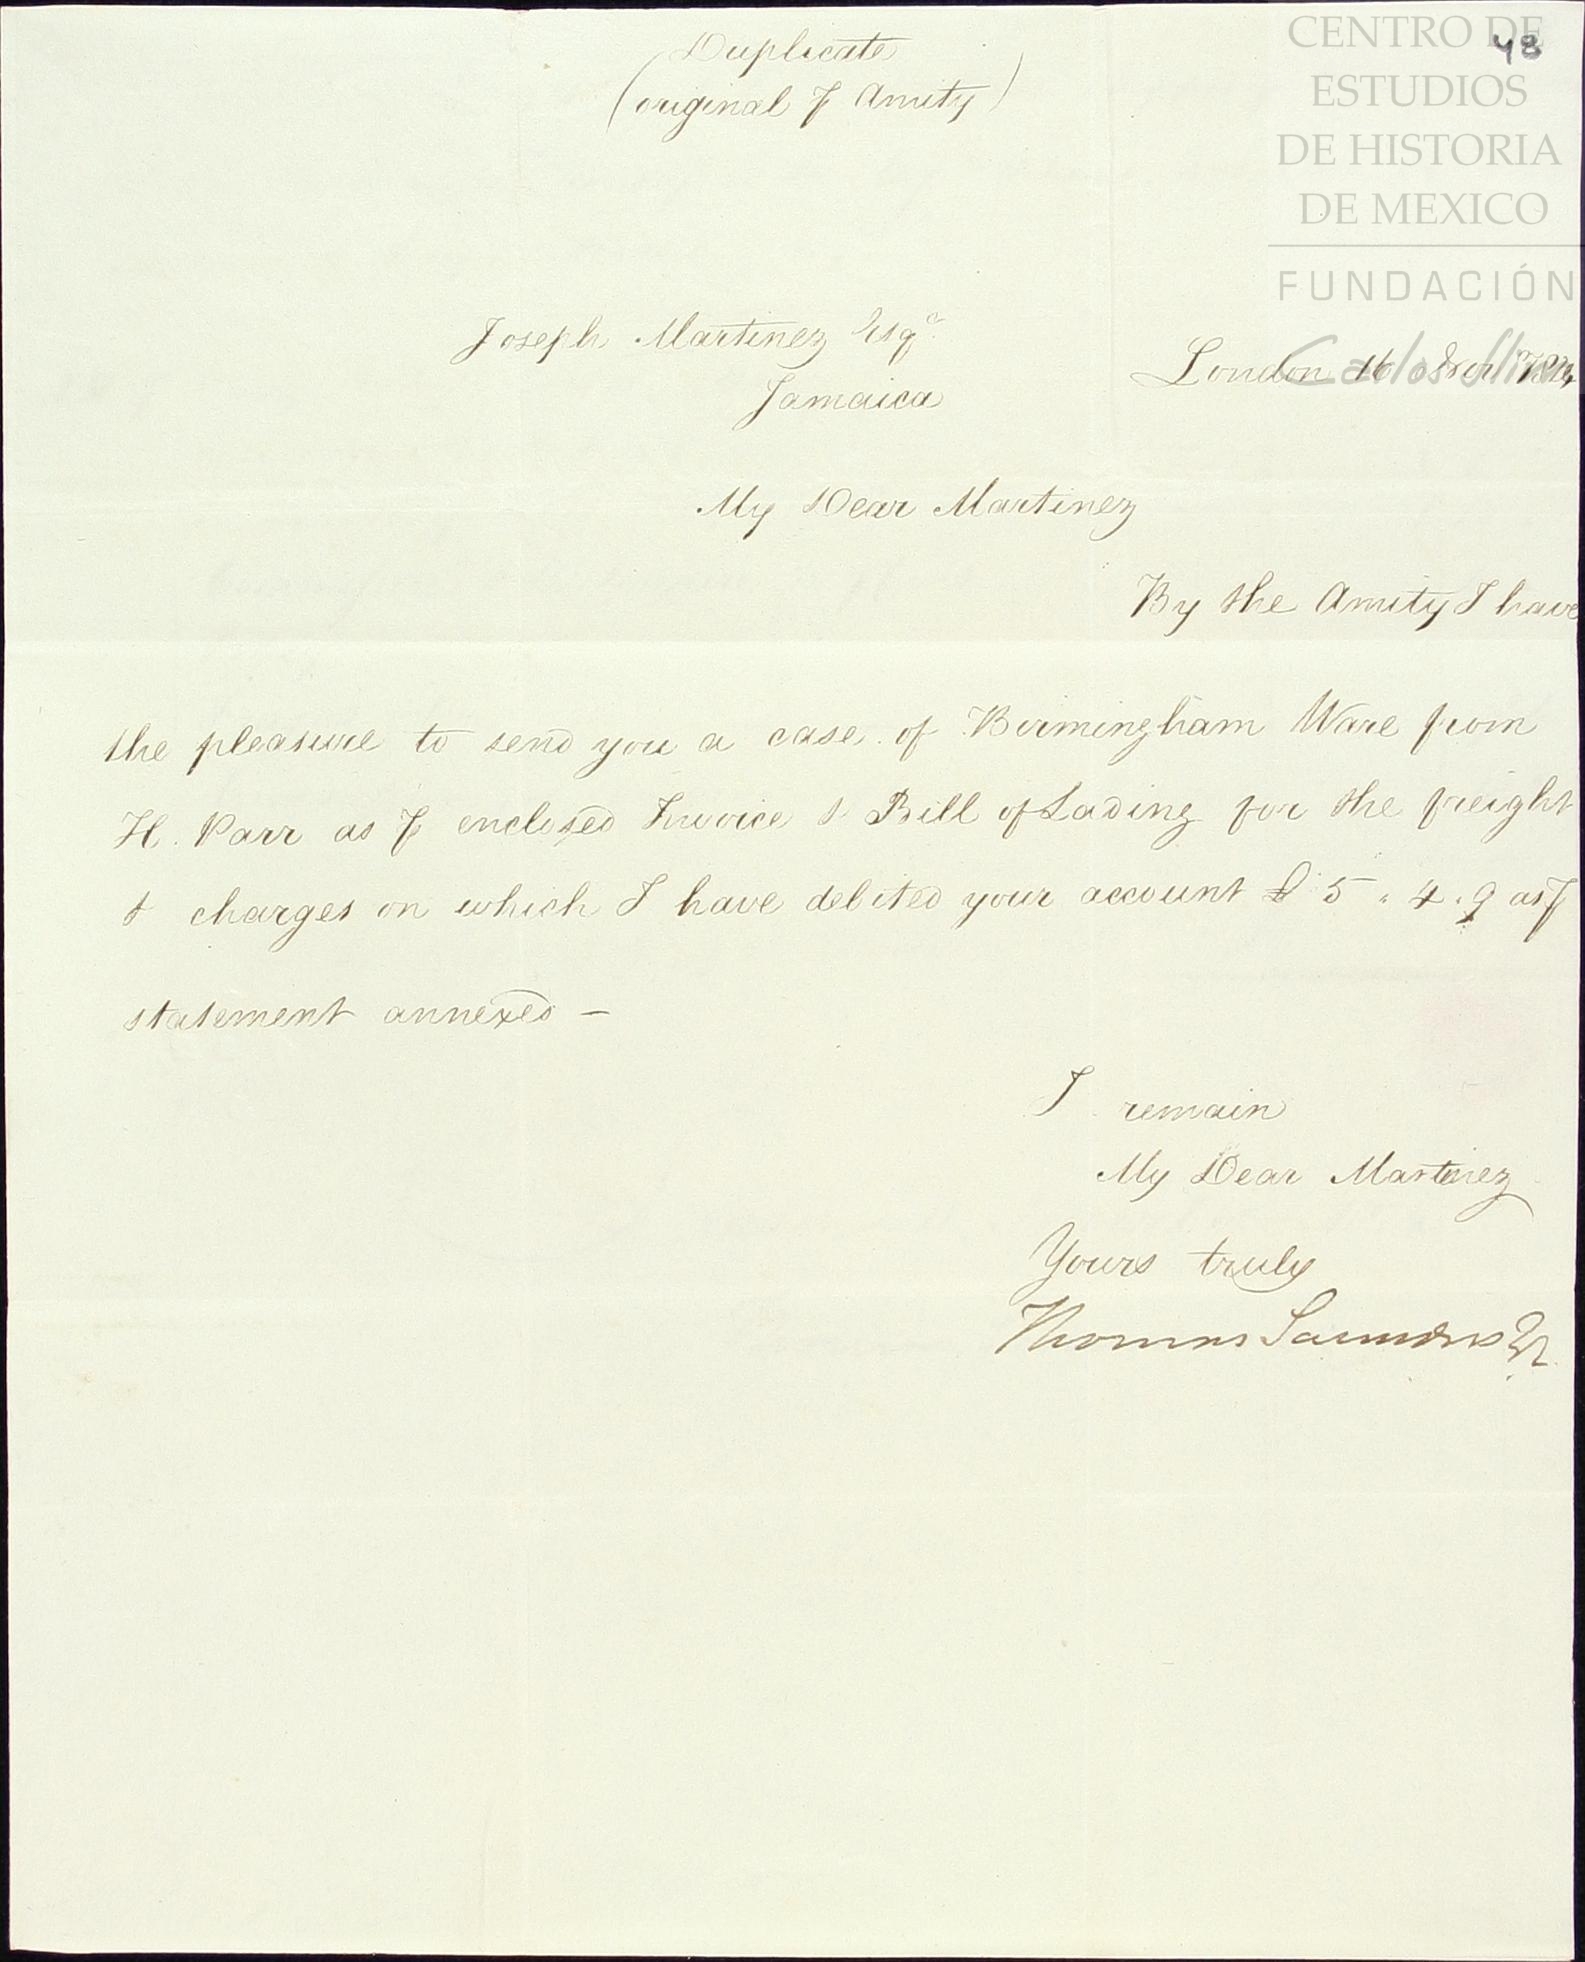 Duplicate
(original ⅌ Amity)
48
CENTRO DE
ESTUDIOS
DE HISTORIA
DE MEXICO
FUNDACIÓN
Carlos Slim
Joseph Martinez Esqr
Jamaica
London 16
My Dear Martinez
By the Amity I have
the pleasure to send you a case of Birmingham Ware from
H. Parr as ⅌ enclosed Invoice & Bill of Lading for the freight
& charges on which I have debited your account £ 5 . 4 . 9 as ⅌
statement annexed –
I remain
My Dear Martinez
Yours truly
Thomas Saunders Jr